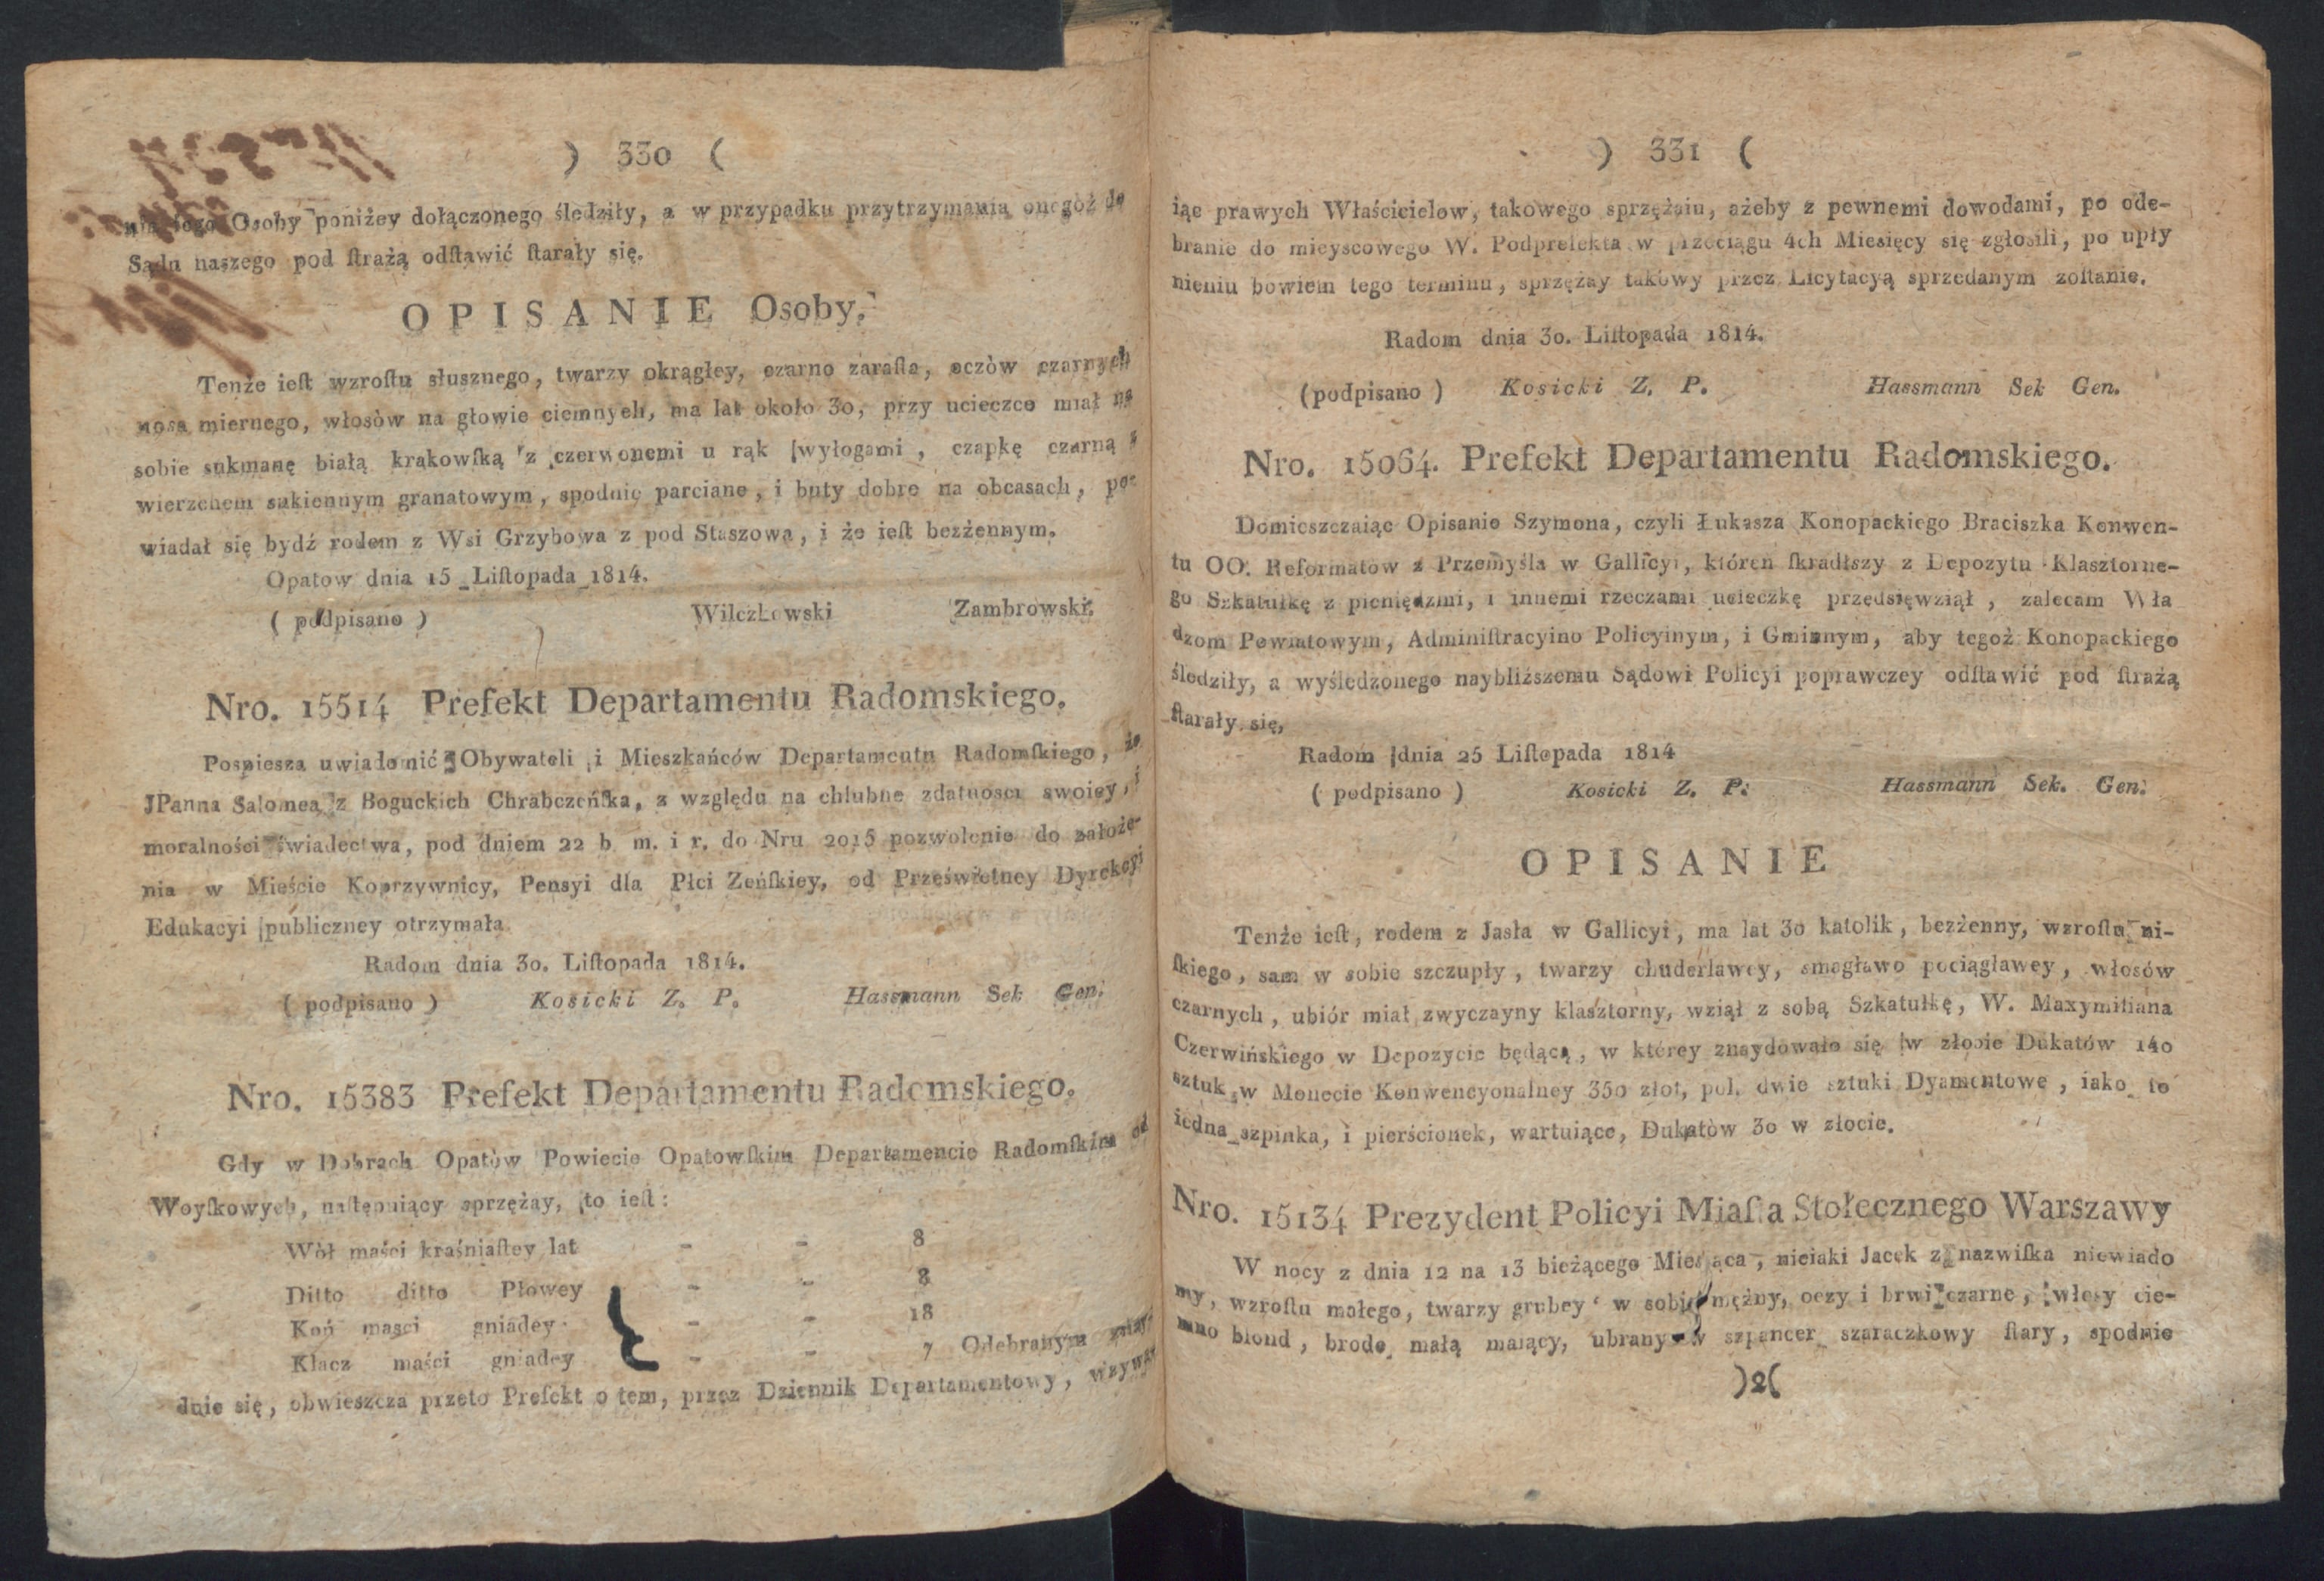 ) 330 (
Osoby poniżey dołączonego śledziły, a w przypadku przytrzymania onegoż do
Sądu naszego pod ſtrażą odſtawić ſtarały się.
OPISANIE Osoby.
Tenże ieſt wzroſtu słusznego, twarzy okrągłey, czarno zaraſta, oczòw czarnych
nosa miernego, włosòw na głowie ciemnych, ma lat około 30, przy ucieczce miał na
sobie sukmanę białą krakowſką z czerwonemi u rąk wyłogami, czapkę czarną z
wierzchem sukiennym granatowym, spodnie parciane, i buty dobre na obcasach, po-
wiadał się bydź rodem z Wsi Grzybowa z pod Staszowa, i że ieſt bezżennym.
Opatow dnia 15 Liſtopada 1814.
( podpisano ) Wilczkowski Zambrowski.
Nro. 15514 Prefekt Departamentu Radomskiego.
Pospiesza uwiadomić Obywateli i Mieszkańców Departamentu Radomſkiego, że
JPanna Salomea z Boguckich Chrąbczeńſka, z względu na chlubne zdatności swoiey, i
moralności świadectwa, pod dniem 22 b m. i r. do Nru 2015 pozwolenie do założe-
nia w Mieście Koprzywnicy, Pensyi dla Płci Zeńſkiey, od Prześwietney Dyrekcyi
Edukacyi publiczney otrzymała
Radom dnia 30. Liſtopada 1814.
( podpisano ) Kosicki Z. P. Hassmann Sek Gen.
Nro. 15383 Prefekt Departamentu Radomskiego.
Gdy w Dobrach Opatòw Powiecie Opatowſkim Departamencie Radomſkim od
Woyſkowych, naſtępuiący sprzężay, to ieſt:
Wòł maści kraśniaſtey lat - - 8
Ditto ditto Płowey - - 8
Koń maści gniadey - - 18
Klacz maści gniadey - - 7 Odebranym znay-
duie się, obwieszcza przeto Prefekt o tem, przez Dziennik Departamentowy, wzywa-
) 331 (
iąc prawych Właścicielow, takowego sprzężaiu, ażeby z pewnemi dowodami, po ode-
branie do mieyscowego W. Podprefekta w przeciągu 4ch Miesięcy się zgłosili, po upły
nieniu bowiem tego terminu, sprzężay takowy przez Licytacyą sprzedanym zoſtanie.
Radom dnia 30. Liſtopada 1814.
(podpisano ) Kosicki Z. P. Hassmann Sek Gen.
Nro. 15064. Prefekt Departamentu Radomskiego.
Domieszczaiąc Opisanie Szymona, czyli Łukasza Konopackiego Braciszka Konwen-
tu OO. Reformatow z Przemyśla w Gallicyi, któren ſkradłszy z Depozytu Klasztorne-
go Szkatułkę z pieniędzmi, i innemi rzeczami ucieczkę przedsięwziął, zalecam Wła
dzom Powiatowym, Adminiſtracyino Policyinym, i Gminnym, aby tegoż Konopackiego
śledziły, a wyśledzonego naybliższemu Sądowi Policyi poprawczey odſtawić pod ſtrażą
ſtarały się,
Radom dnia 25 Liſtopada 1814
( podpisano ) Kosicki Z. P. Hassmann Sek. Gen.
OPISANIE
Tenże ieſt, rodem z Jasła w Gallicyi, ma lat 30 katolik, bezżenny, wzroſtu ni-
ſkiego, sam w sobie szczupły, twarzy chuderlawey, smagławo pociągławey, włosów
czarnych, ubiór miał zwyczayny klasztorny, wziął z sobą Szkatułkę, W. Maxymiliana
Czerwińskiego w Depozycie będącą, w którey znaydowało się w złocie Dukatów 140
sztuk w Monecie Konwencyonalney 350 złot, pol. dwie sztuki Dyamentowe, iako to
iedna szpinka, i pierścionek, wartuiące, Dukatòw 30 w złocie.
Nro. 15134 Prezydent Policyi Miaſta Stołecznego Warszawy
W nocy z dnia 12 na 13 bieżącego Miesiąca, nieiaki Jacek z nazwiſka niewiado
my, wzroſtu małego, twarzy grubey w sobie mężny, oczy i brwi czarne, włosy cie-
mno blond, brodę małą maiący, ubrany w szpancer szaraczkowy ſtary, spodnie
)2(